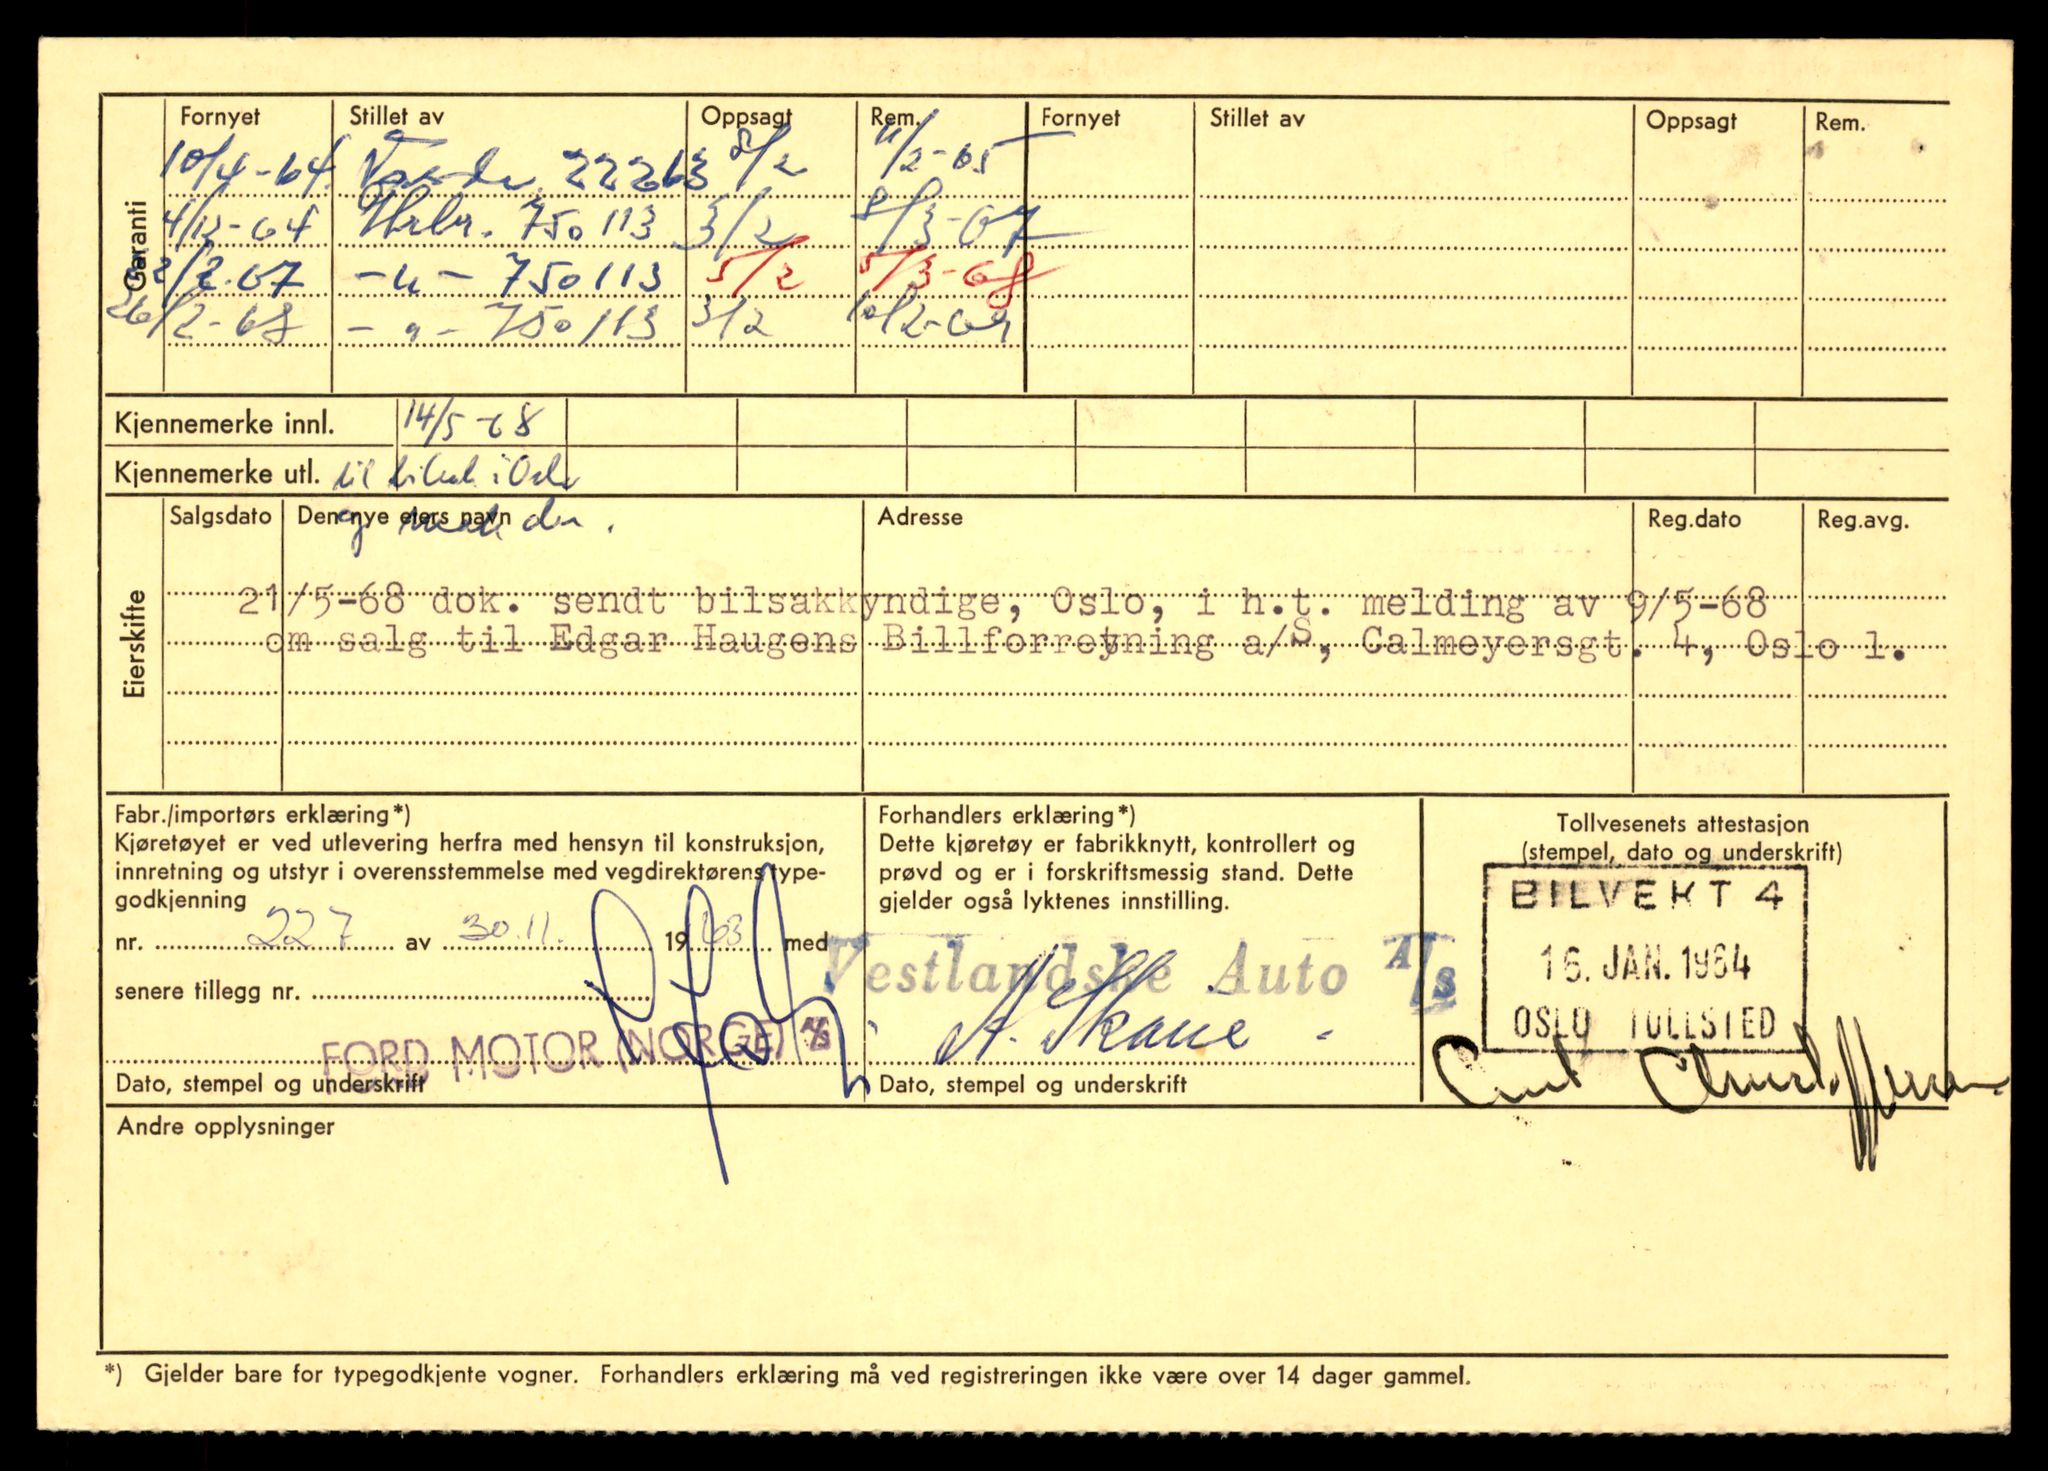 Garanti
Fornyet Stillet av Oppsagt Rem. Fornyet Stillet av Oppsagt Rem.
10/4-64 22263 8/2 11/2-65
4/12-64 750113 3/2 8/3-67
22/2-67 -"- 750113 5/2 5/3-68
26/2-68 -"- 750113 3/2 10/2-69
Kjennemerke innl. 14/5-68
Kjennemerke utl. til i Oslo
Eierskifte
Salgsdato Den nye eiers navn Adresse Reg.dato Reg.avg.
21/5-68 dok. sendt bilsakkyndige, Oslo, i h.t. melding av 9/5-68
om salg til Edgar Haugens Billforretning a/S, Calmeyersgt. 4, Oslo 1.
Fabr./importørs erklæring*)
Kjøretøyet er ved utlevering herfra med hensyn til konstruksjon,
innretning og utstyr i overensstemmelse med vegdirektørens type-
godkjenning
nr. 227 av 30.11. 1963 med
senere tillegg nr.
FORD MOTOR (NORGE) A/S
Dato, stempel og underskrift
Forhandlers erklæring*)
Dette kjøretøy er fabrikknytt, kontrollert og
prøvd og er i forskriftsmessig stand. Dette
gjelder også lyktenes innstilling.
Vestlandske Auto A/S
A. Skane
Dato, stempel og underskrift
Tollvesenets attestasjon
(stempel, dato og underskrift)
BILVEKT 4
16. JAN. 1964
OSLO TOLLSTED
Andre opplysninger
*) Gjelder bare for typegodkjente vogner. Forhandlers erklæring må ved registreringen ikke være over 14 dager gammel.